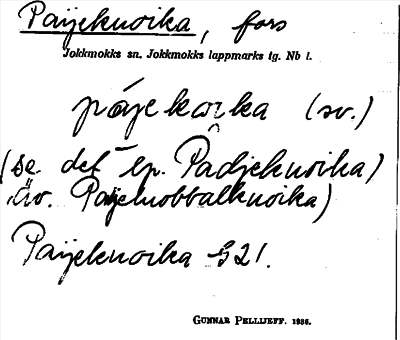 Paijekuoika, fors
Jokkmokks sn. Jokkmokks lappmarks tg. Nb l.
(sv.)
(se det ep. Padjekuoika)
Äv. Paijekuobbalkuoika)
Paijekuoika G21.
GUNNAR PELLIJEFF. 1936.